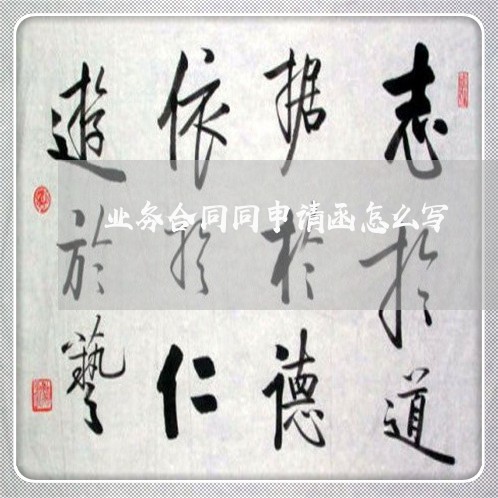 志於道
据於德
依於仁
遊於藝
业务合同同申请函怎么写